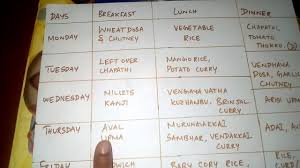 DAYS BREAKFAST LUNCH DINNER
MONDAY WHEAT DOSA & CHUTNEY VEGETABLE RICE CHAPATHI, TOMATO THOKKU
TUESDAY LEFT OVER CHAPATHI MANGO RICE, POTATO CURRY VENDHAYA DOSA, & CHUTN
WEDNESDAY MILLETS KANJI VENGAYA VATHA KUZHAMBU, BRINJAL CURRY ARISI UPMA
THURSDAY AVAL UPMA MURUNGAKKAI SAMBHAR, VENDAKKAI CURRY ADAI,
FRIDAY DWICH BABY CORN RICE,